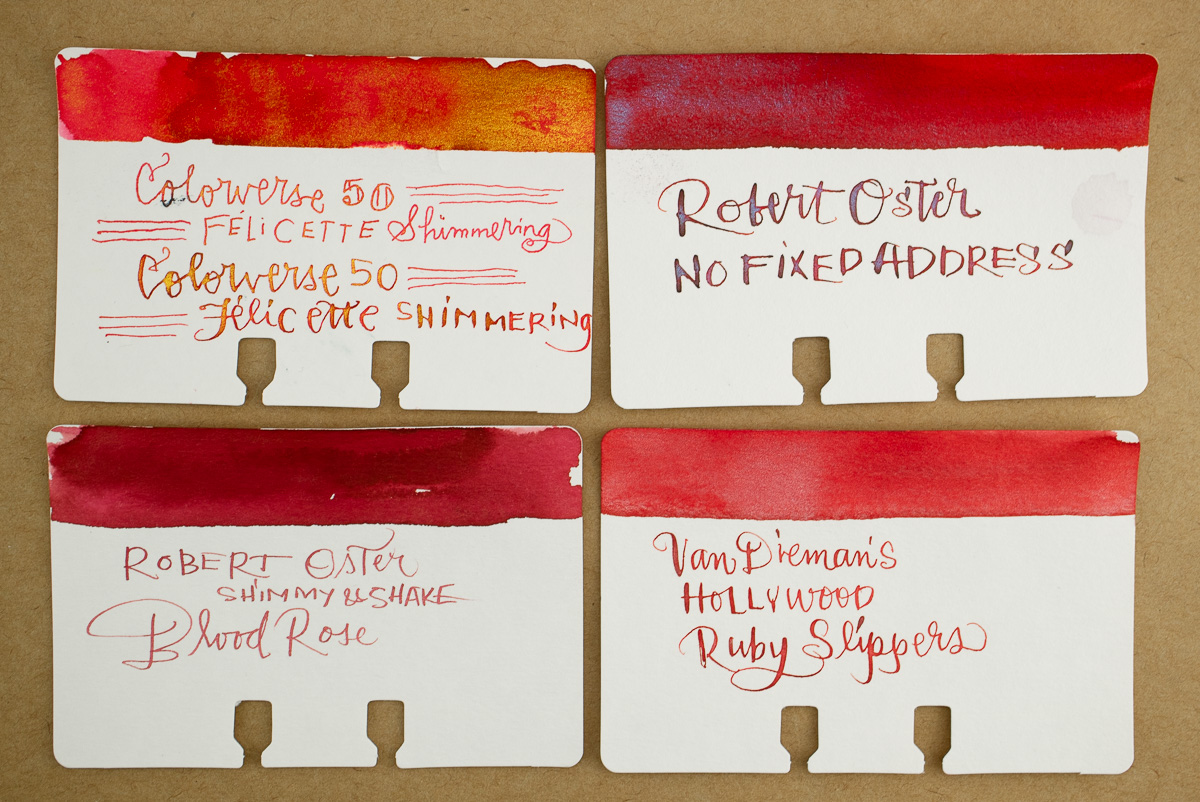 Colorverse 50
FÉLICETTE Shimmering
Colorverse 50
Félicette SHIMMERING
Robert Oster
NO FIXED ADDRESS
ROBERT OSTER
SHIMMY & SHAKE
Blood Rose
Van Dieman's
HOLLYWOOD
Ruby Slippers